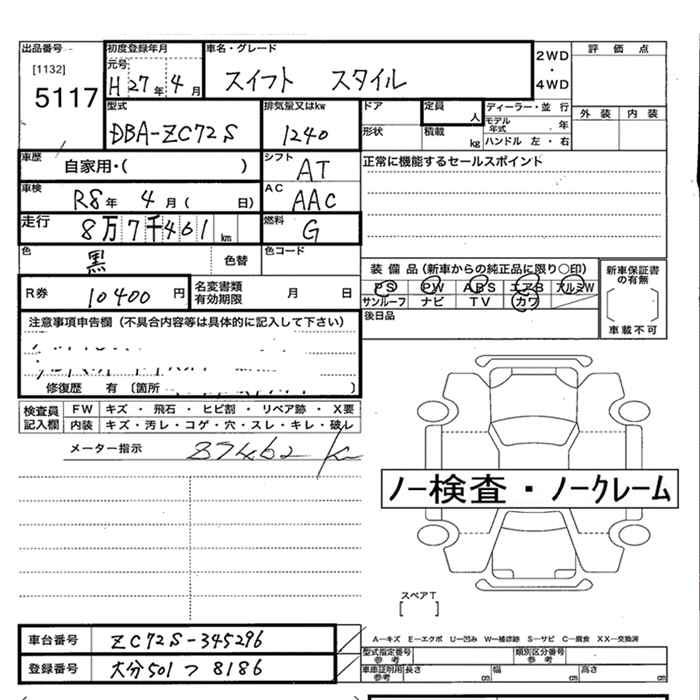 出品番号 初度登録年月 車名・グレード 2WD・4WD 評価点
[1132] 元号
5117 H27年4月 スイフト スタイル
型式 排気量又はkw ドア 定員 人 ディーラー・並行 外装 内装
DBA-ZC72S 1240 形状 積載 kg モデル年式 年
ハンドル 左・右
車歴 自家用・( ) シフト AT 正常に機能するセールスポイント
車検 R8年4月( 日) AC AAC
走行 8万7千461km 燃料 G
色 黒 色替 色コード
装備品(新車からの純正品に限り〇印) 新車保証書の有無
R券 10400円 名変書類有効期限 月 日
PS PW ABS エアB アルミW
サンルーフ ナビ TV カワ
車載不可
注意事項申告欄(不具合内容等は具体的に記入して下さい) 後日品
修復歴 有 〔箇所 〕
検査員記入欄 FW キズ・飛石・ヒビ割・リペア跡・X要
内装 キズ・汚レ・コゲ・穴・スレ・キレ・破レ
メーター指示 87462
ノー検査・ノークレーム
スペアT
[ ]
車台番号 ZC72S-345296
A―キズ E―エクボ U―凹み W―補修跡 S―サビ C―腐食 XX―交換済
型式指定番号 参考 類別区分番号 参考
登録番号 大分501つ8186
車庫証明用 参考 長さ cm 幅 cm 高さ cm